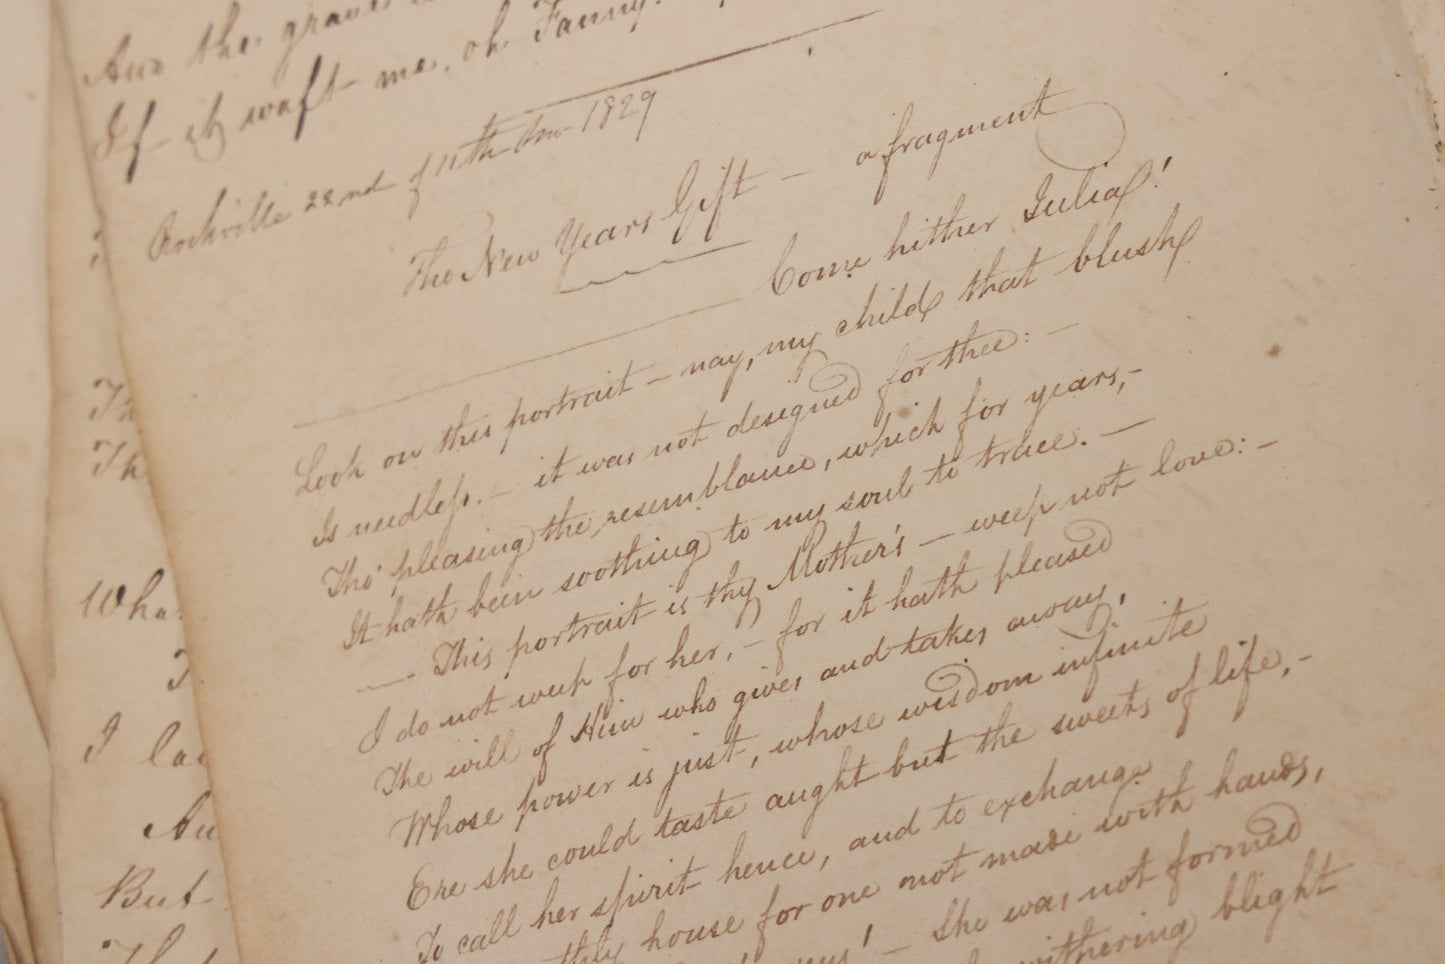 And the grave
If it waft me. oh Fanny.
Rockville 22nd of 11th mo 1829
The New Years Gift — a fragment
Come hither Julia!
Look on this portrait — nay, my child that blush
Is needless. — it was not designed for thee: —
Tho' pleasing the resemblance, which for years, -
It hath been soothing to my soul to trace. —
— This portrait is thy Mother's — weep not love: -
I do not weep for her, - for it hath pleased
The will of Him who gives and takes away,
Whose power is just, whose wisdom infinite
Ere she could taste aught but the sweets of life, -
To call her spirit hence, and to exchange
house for one not made with hands,
! — She was not formed
withering blight
Th
Th
Wha
I
I la
An
But